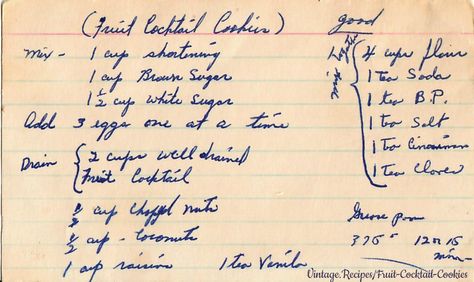 (Fruit Cocktail Cookies)
good
Mix - 1 cup shortening
1 cup Brown Sugar
1 1/2 cup White Sugar
Add 3 eggs one at a time
Drain { 2 cups well drained
Fruit Cocktail
1/2 cup chopped nuts
1/2 cup - Coconuts
1 cup raisins 1 tea Vanila
mix together
4 cups flour
1 tea Soda
1 tea B.P.
1 tea Salt
1 tea Cinnamon
1 tea Cloves
Grease pan
375° 12 or 15
min-
Vintage.Recipes/Fruit-Cocktail-Cookies